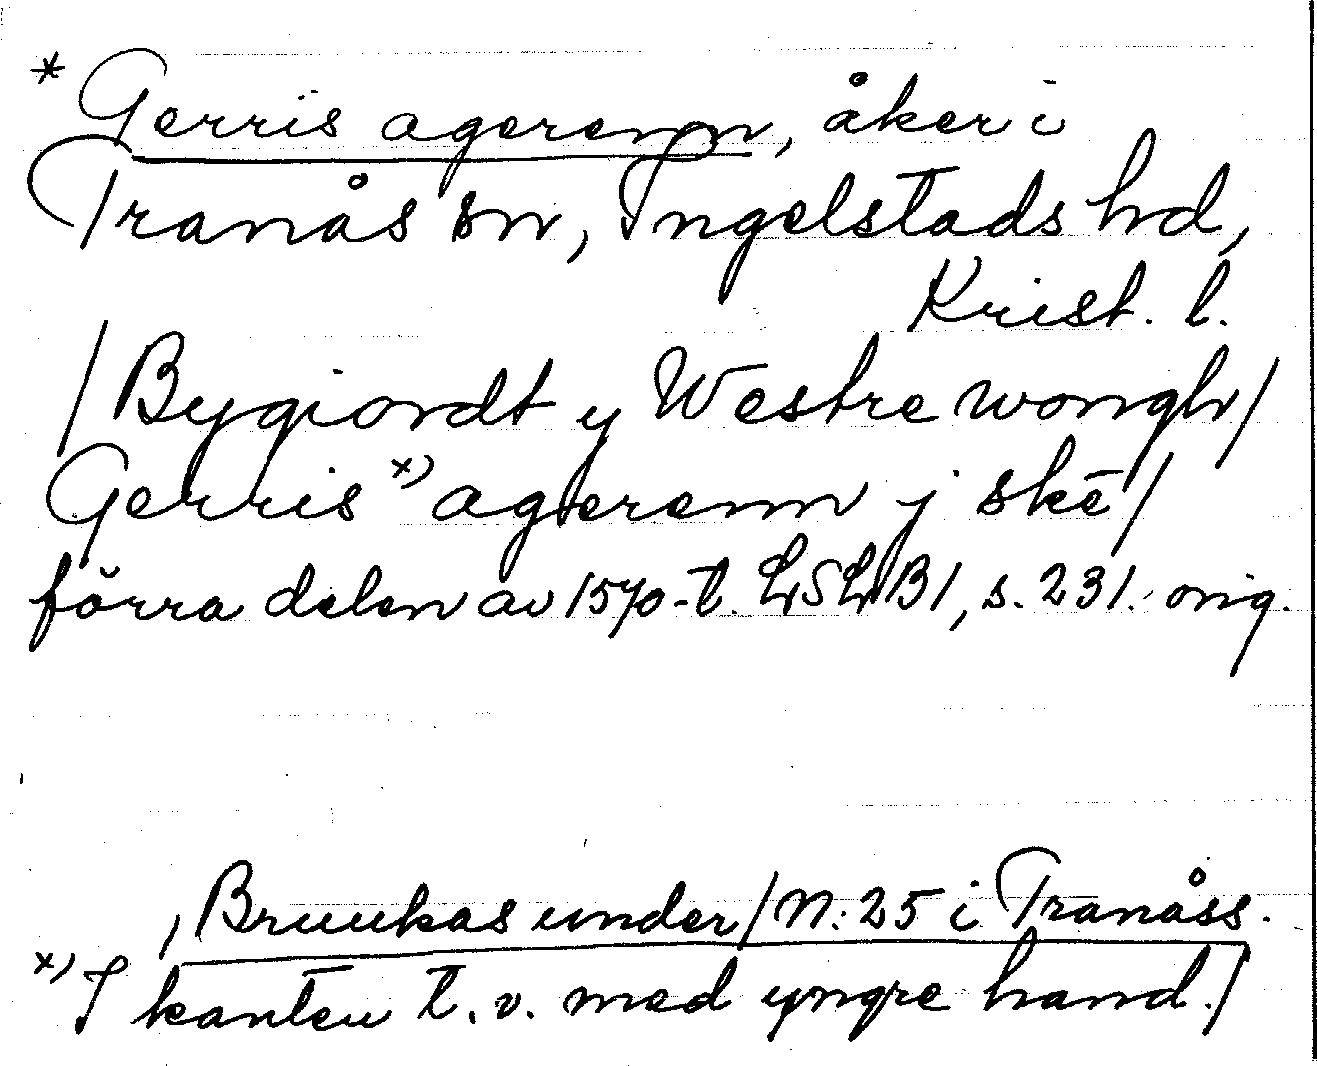 * Gerris agerenn, åker i
Tranås sn, Ingelstads hd,
Krist. l.
/Bygiordt y Westre wongh/
Gerris x) agerenn j skē/
förra delen av 1570-t. LSLB1, s. 231. orig.
/Bruukas under/ N: 25 i Tranåss.
x) I kanten t. v. med yngre hand./